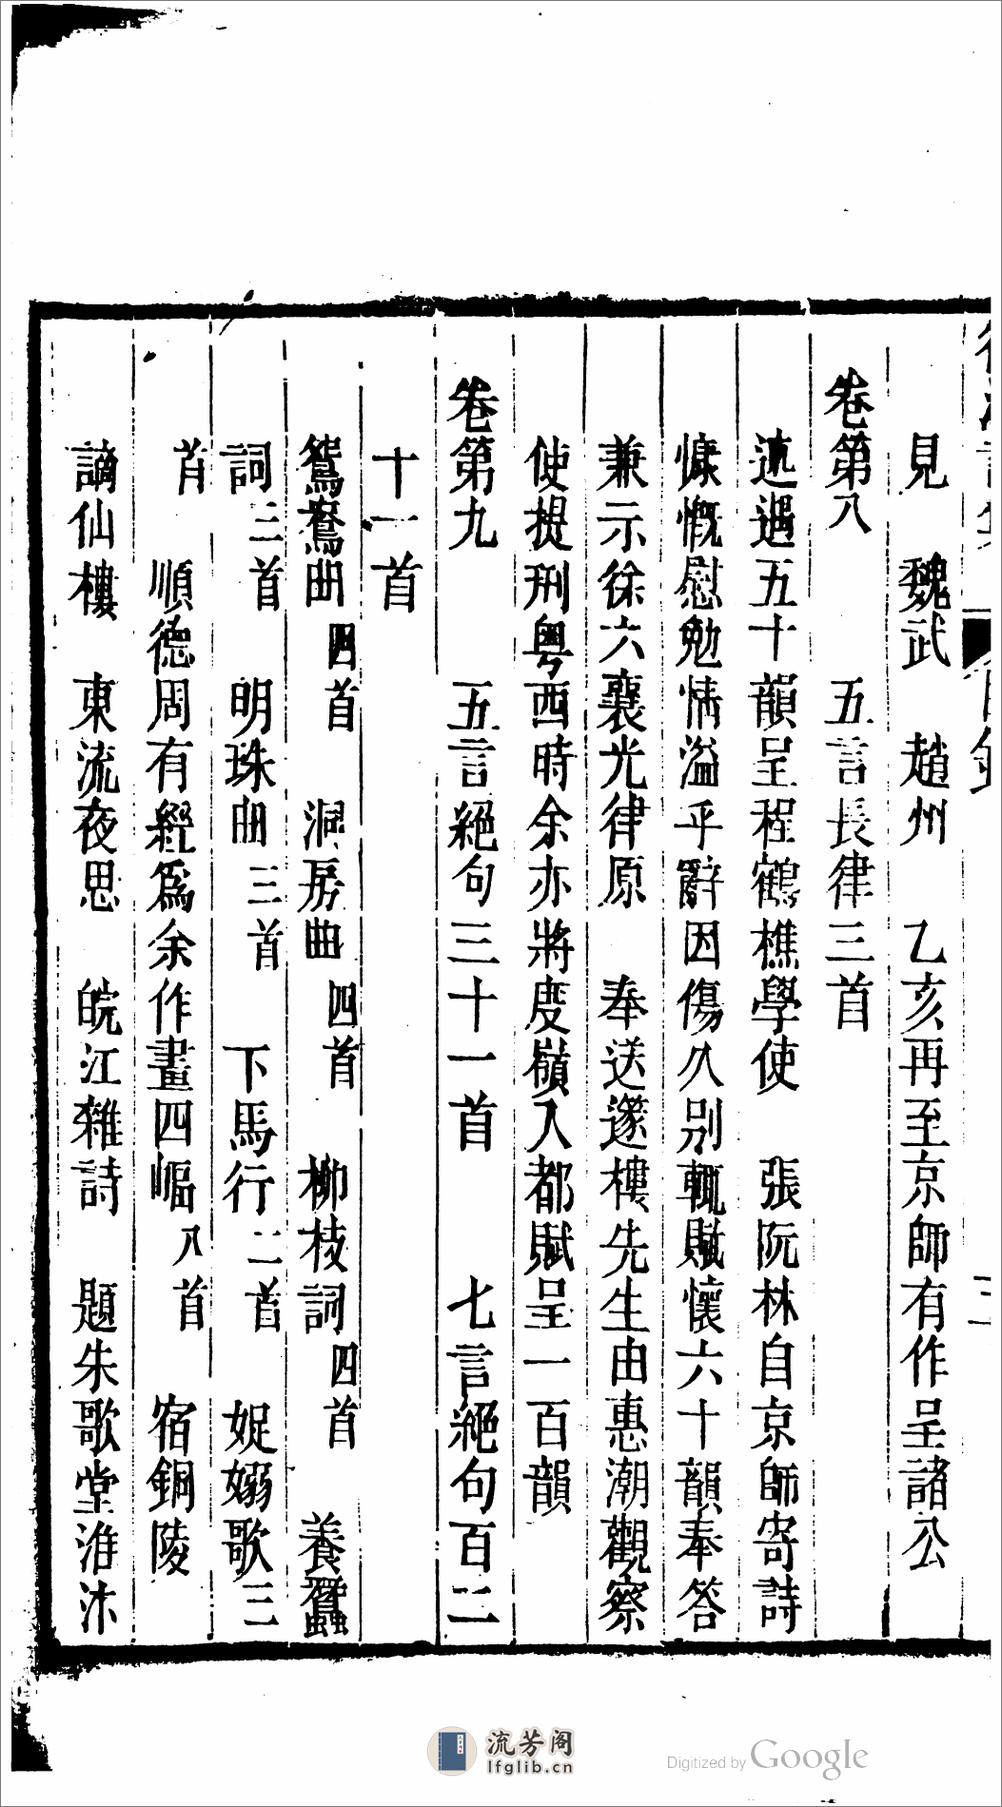 見　魏武　趙州　乙亥再至京師有作呈諸公
卷第八　　五言長律三首
述遇五十韻呈程鶴樵學使　張阮林自京師寄詩
慷慨慰勉情溢乎辭因傷久別輒賦懷六十韻奉答
兼示徐六襄光律原　奉送邃樓先生由惠潮觀察
使提刑粵西時余亦將度嶺入都賦呈一百韻
卷第九　　五言絕句三十一首　　七言絕句百二
十一首
鴛鴦曲四首　洞房曲四首　柳枝詞四首　養蠶
詞三首　明珠曲三首　下馬行二首　娖嫋歌三
首　順德周有經為余作畫四幅八首　宿銅陵
謫仙樓　東流夜思　皖江雜詩　題朱歌堂淮沭
流芳阁
lfglib.cn
Digitized by Google